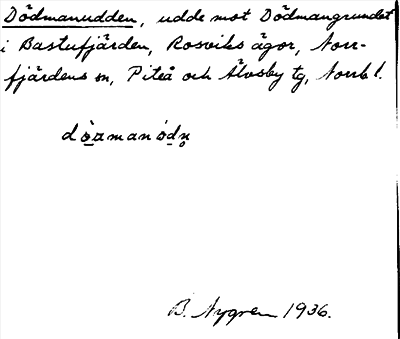 Dödmanudden, udde mot Dödmangrundet
i Bastufjärden, Rosviks ägor, Norr-
fjärdens sn, Piteå och Älvsby tg, Norrb l.
B. Nygren 1936.